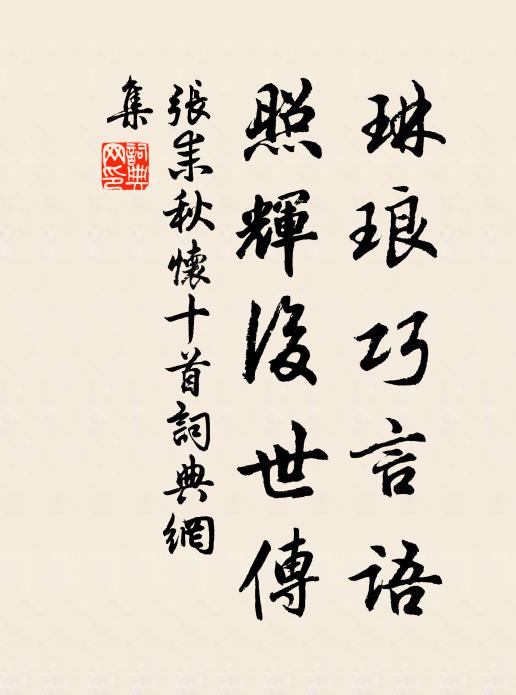 琳琅巧言語
照輝後世傳
張耒秋懷十首詞典網
集
詞典網印